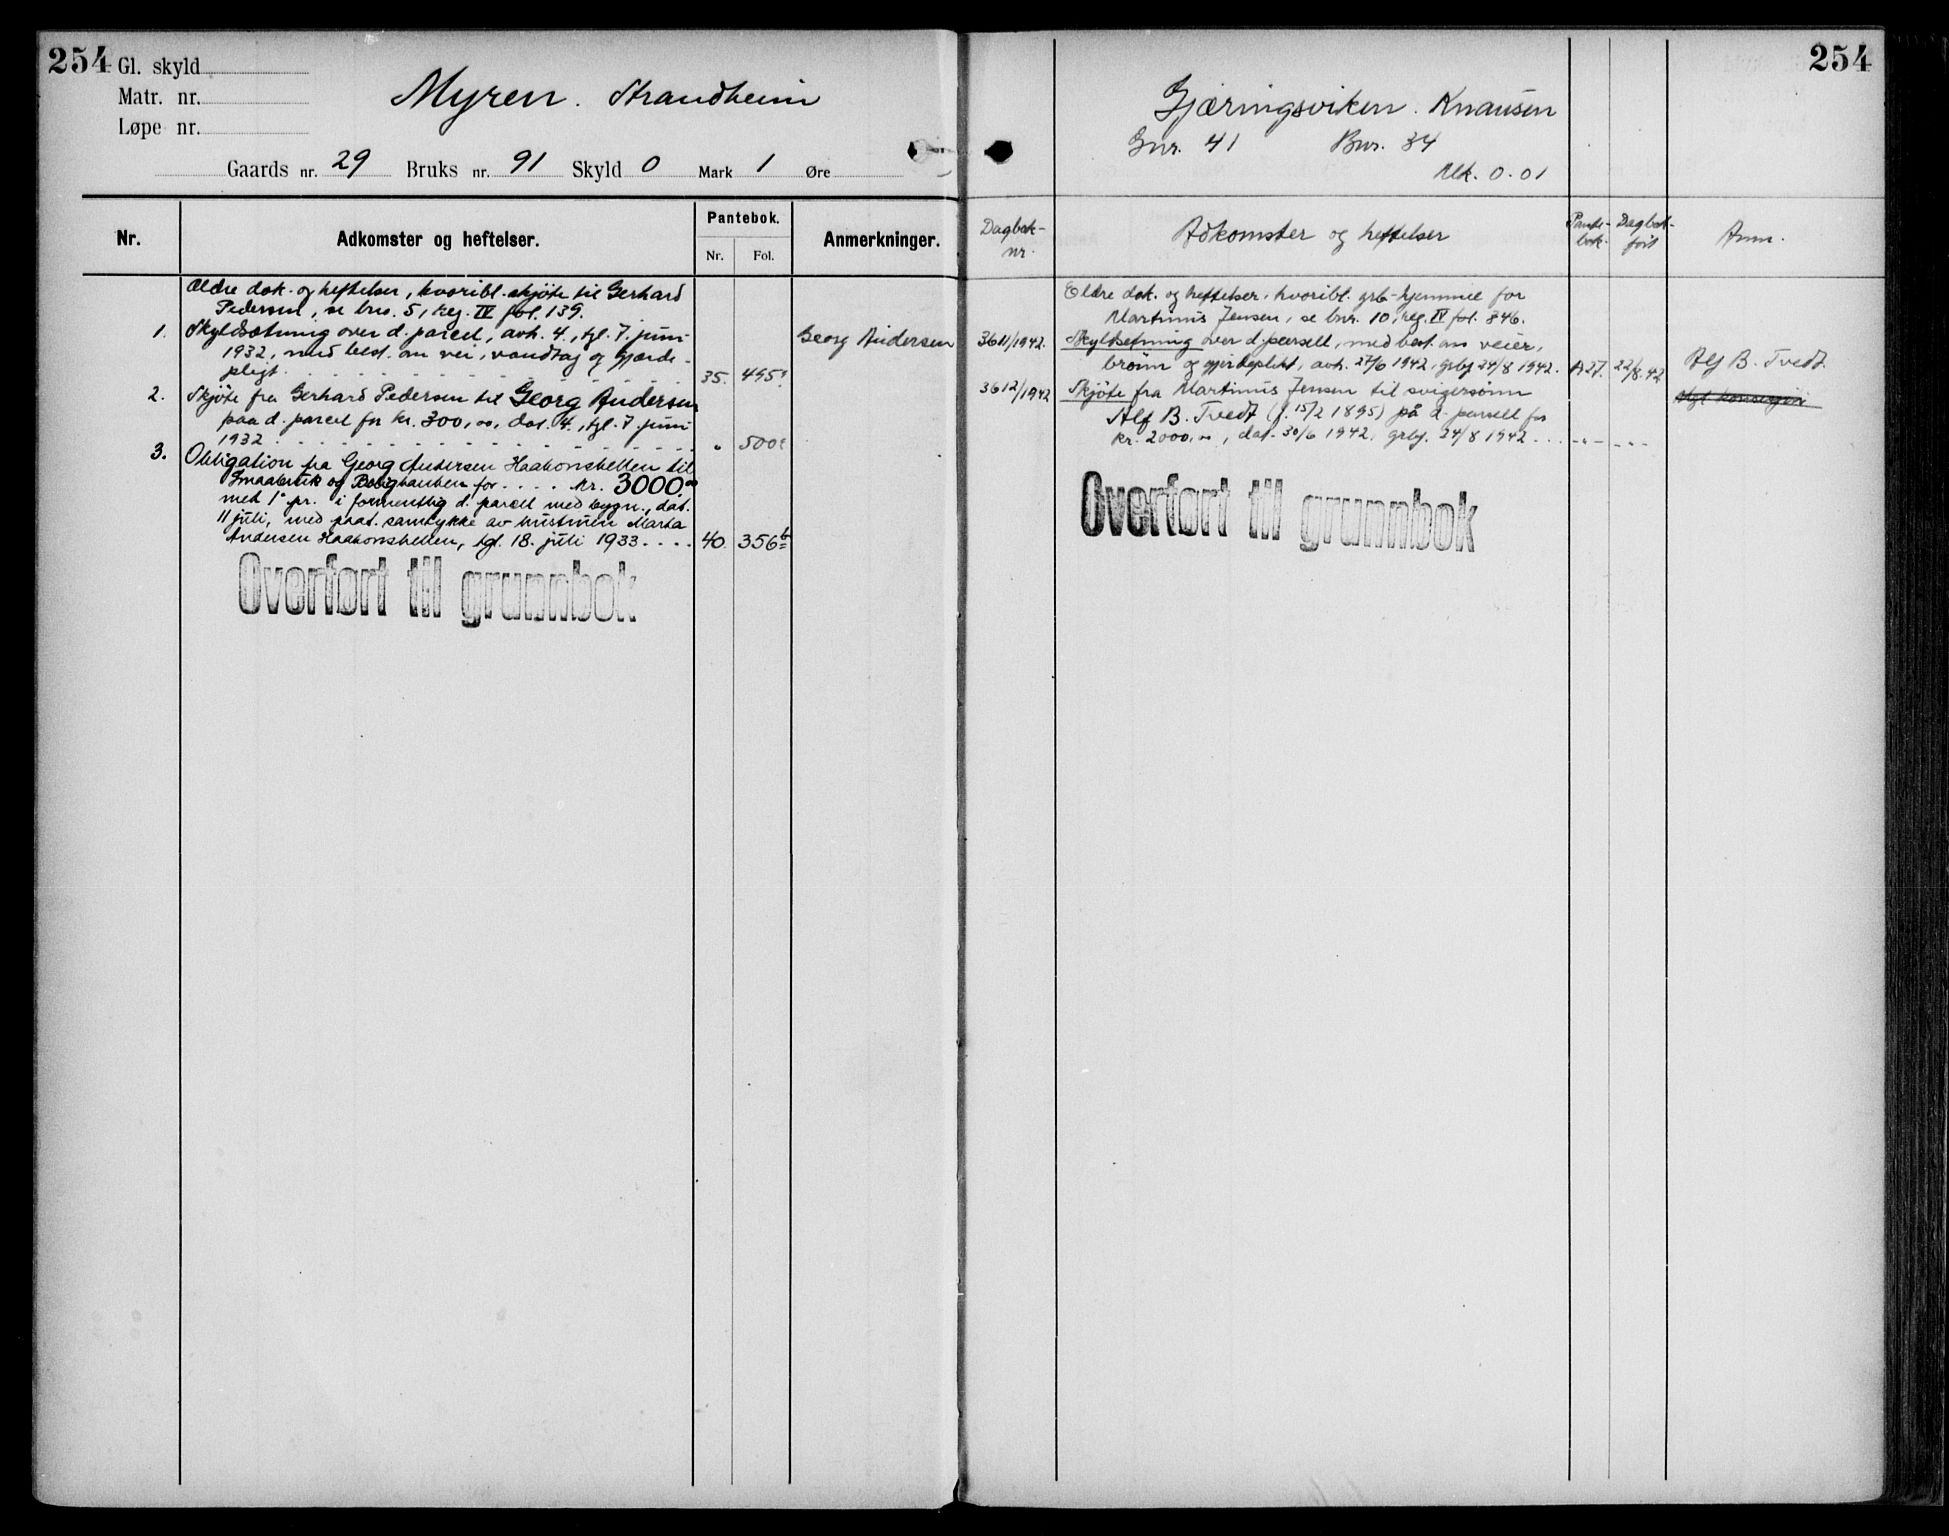 254
Gl. skyld
Matr. nr.
Løpe nr.
Myren. Strandheim
Gaards nr. 29 Bruks nr. 91 Skyld 0 Mark 1 Øre
Nr.
Adkomster og heftelser.
Pantebok.
Nr. Fol.
Anmerkninger.
Ældre dok. og heftelser, hvoribl. skjöte til Gerhard
Pedersen, se bno. 5, reg. IV fol. 139.
1. Skyldsætning over d. parcel, avh. 4., tgl. 7. juni
1932, med best. om vei, vandtag og gjærde-
pligt. 35. 495
Georg Andersen
2. Skjöte fra Gerhard Pedersen til Georg Andersen
paa d. parcel for kr. 300,00, dat. 4., tgl. 7 juni
1932 " 500
3. Obligation fra Georg Andersen Haakonshellen til
Smaabruk og Bolighanken for .... kr. 3000,00
med 1° pr. i formentlig d. parcel med bygn., dat.
11 juli, med paat. samtykke av hustruen Marta
Andersen Haakonshellen, tgl. 18. juli 1933.... 40. 356b
Overført til grunnbok
254
Gjæringsviken. Knausen
Gnr. 41 Bnr. 34
Mk. 0.01
Dagbok-
nr.
Adkomster og heftelser
Pante-
bok.
Dagbok-
ført
Anm.
Eldre dok. og heftelser, hvoribl. grb-hjemmel for
Martinus Jensen, se bnr. 10, reg. IV fol. 346.
3611/1942. Skyldsetning over d. parsell, med best. om veier,
brønn og gjerdeplikt, avh. 27/6 1942, grbf 24/8 1942. A27. 22/8.42 Alf B. Tvedt.
3612/1942 Skjöte fra Martinus Jensen til svigersønn
Alf B. Tvedt (f. 15/2 1895) på d. parsell for
kr. 2000,00, dat. 30/6 1942, grbf. 24/8 1942 ... - " - - " -
Overført til grunnbok